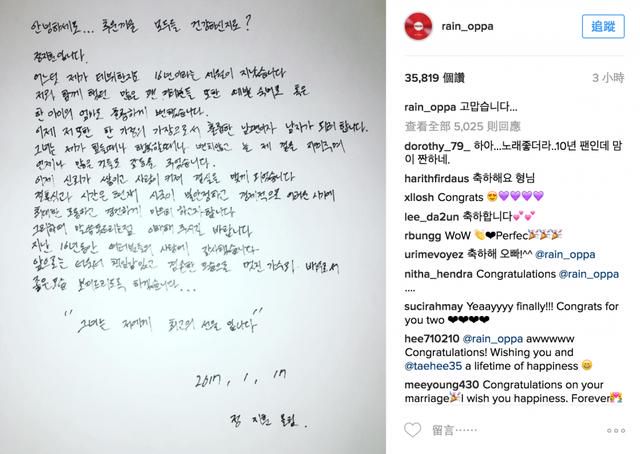 안녕하세요... 추운겨울 모두들 건강하신지요?
정지훈입니다.
어느덧 제가 데뷔한지도 16년이라는 세월이 지났습니다
저와 함께 했던 많은 팬 여러분들 또한
한 아이의 엄마로 훌륭하게 변했습니다.
이제 저 또한 한 가정의 가장으로서 훌륭한 남편이자 남자가 되려 합니다.
그녀는 제가 힘들때나 행복할때나 변치않고 늘 제 곁을 지켜주며
언제나 많은 것들로 감동을 주었습니다.
이제 신뢰가 쌓이고 사랑이 커져 결실을 맺게 되었습니다
결혼식과 시간은 현재 시국이 불안정하고 경제적으로 어려운 시기에
최대한 조용하고 경건하게 마무리 하고자 합니다
지난 16년동안 여러분들의 사랑에 감사했습니다
앞으로는 더더욱 책임감있고 겸손한 모습으로 멋진 가수
좋은모습 보여드리도록 하겠습니다...
"그녀는 저에게 최고의 선물 입니다"
2017, 1, 17
정 지훈 올림.
rain_oppa
追蹤
35,819 個讚
3 小時
rain_oppa 고맙습니다...
查看全部 5,025 則回應
dorothy_79_ 하아...노래좋더라..10년 팬인데 맘
이 짠하네.
harithfirdaus 축하해요 형님
xllosh Congrats 😍💜💜💜💜
lee_da2un 축하합니다💕💕
rbungg WoW 👏❤Perfec🎉🎉🎉
urimevoyez 축하해 오빠!^^ @rain_oppa
nitha_hendra Congratulations @rain_oppa
....
sucirahmay Yeaayyyy finally!!! Congrats for
you two ❤❤❤❤
hee710210 @rain_oppa awwwww
Congratulations! Wishing you and
@taehee35 a lifetime of happiness 😄
meeyoung430 Congratulations on your
marriage🎉I wish you happiness. Forever💏
留言......